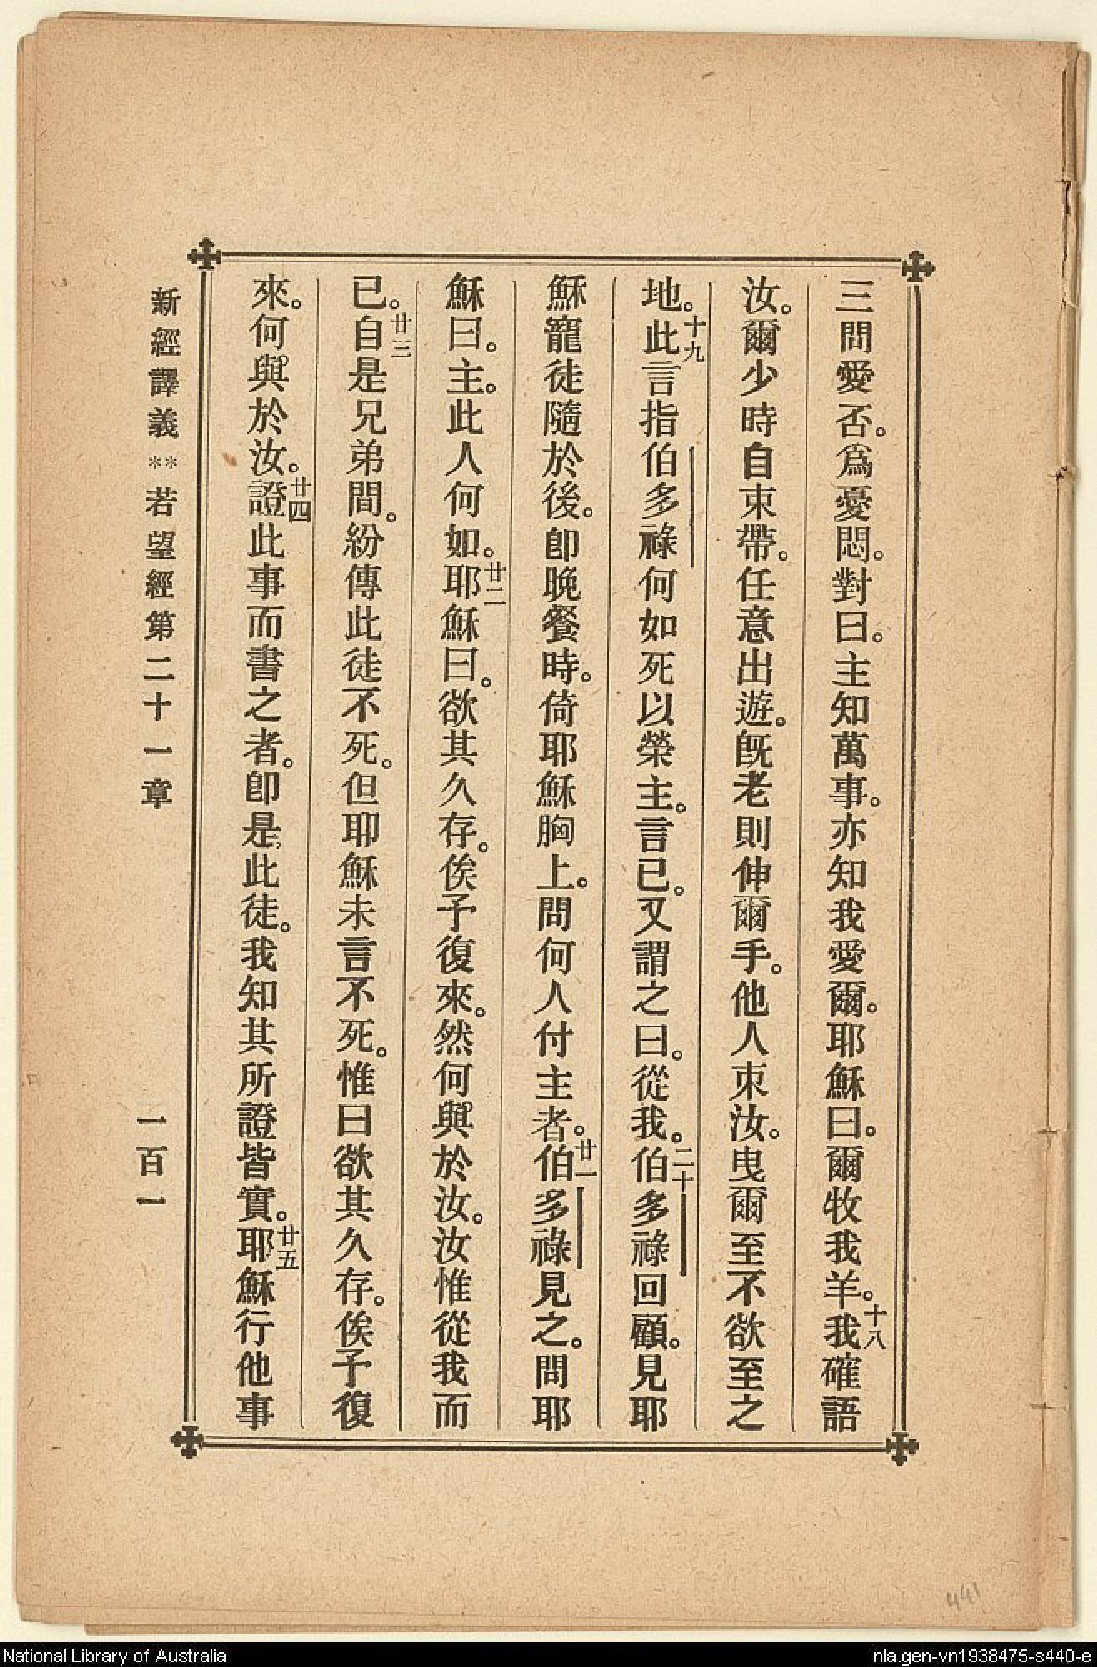 三問愛否。爲憂悶。對曰。主知萬事。亦知我愛爾。耶穌曰。爾牧我羊。十八我確語
汝。爾少時自束帶。任意出遊。旣老則伸爾手。他人束汝。曳爾至不欲至之
地。十九此言指伯多祿何如死以榮主。言已。又謂之曰。從我。二十伯多祿回顧。見耶
穌寵徒隨於後。卽晚餐時。倚耶穌胸上。問何人付主者。廿一伯多祿見之。問耶
穌曰。主。此人何如。廿二耶穌曰。欲其久存。俟予復來。然何與於汝。汝惟從我而
已。廿三自是兄弟間。紛傳此徒不死。但耶穌未言不死。惟曰欲其久存。俟予復
來。何與於汝。廿四證此事而書之者。卽是此徒。我知其所證皆實。廿五耶穌行他事
新經譯義**若望經第二十一章 一百一
441
National Library of Australia
nla.gen-vn1938475-s440-e